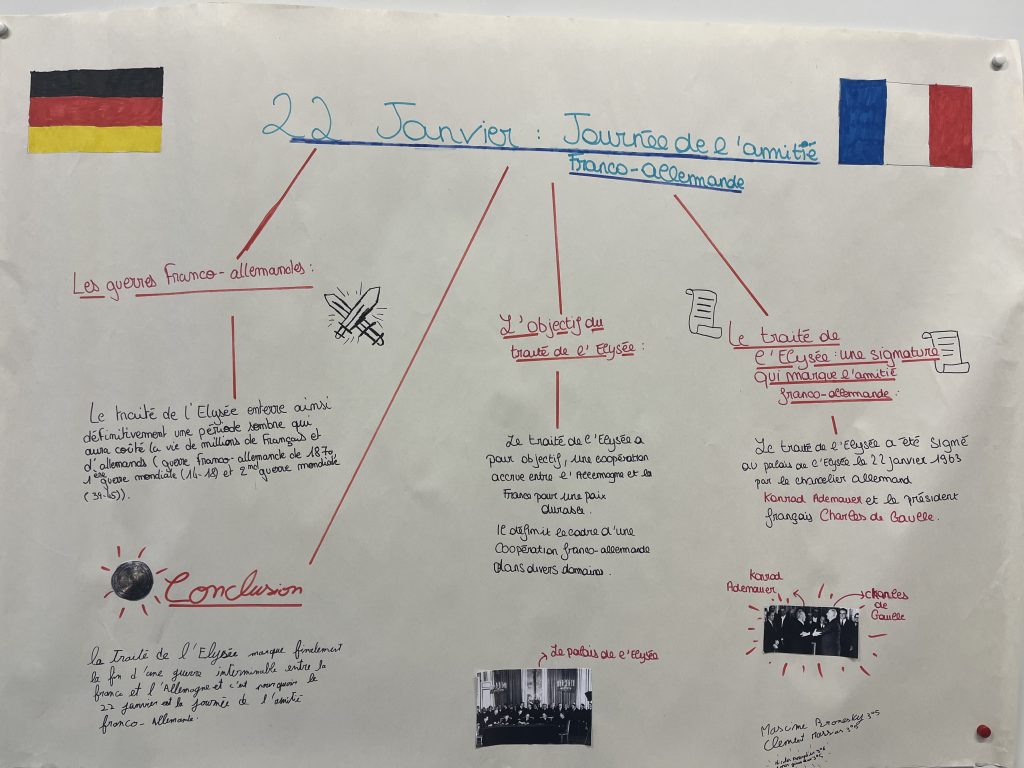 22 Janvier : Journée de l'amitié
Franco-allemande
Les guerres franco-allemandes :
Le traité de l'Elysée enterre ainsi
définitivement une période sombre qui
aura coûté la vie de millions de Français et
d'allemands (guerre franco-allemande de 1870,
1ère guerre mondiale (14-18) et 2nd guerre mondiale
(39-45)).
Conclusion
la traité de l'Elysée marque finalement
la fin d'une guerre interminable entre la
france et l'Allemagne et c'est pourquoi le
22 janvier est la journée de l'amitié
franco-Allemande.
L'objectif du
traité de l'Elysée :
Le traité de l'Elysée a
pour objectif, une coopération
accrue entre l'Allemagne et la
France pour une paix
durable.
Il définit le cadre d'une
Coopération franco-allemande
dans divers domaines.
Le palais de l'Elysée
Le traité de
l'Elysée : une signature
qui marque l'amitié
franco-allemande :
Le traité de l'Elysée a été signé
au palais de l'Elysée le 22 janvier 1963
par le chancelier allemand
Konrad Ademauer et le président
français Charles de Gaulle.
Konrad
Ademauer
charles
de
Gaulle
3°5
Clement 3°5